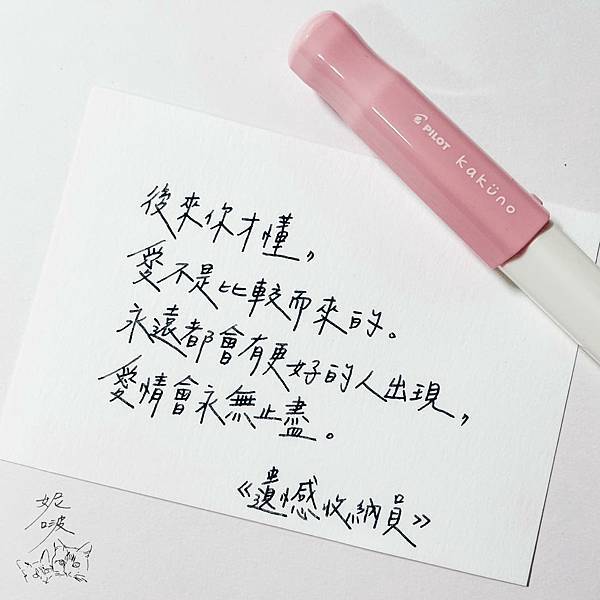 PILOT kaküno
後來你才懂，
愛不是比較而來的。
永遠都會有更好的人出現，
愛情會永無止盡。
《遺憾收納員》
妮
啵